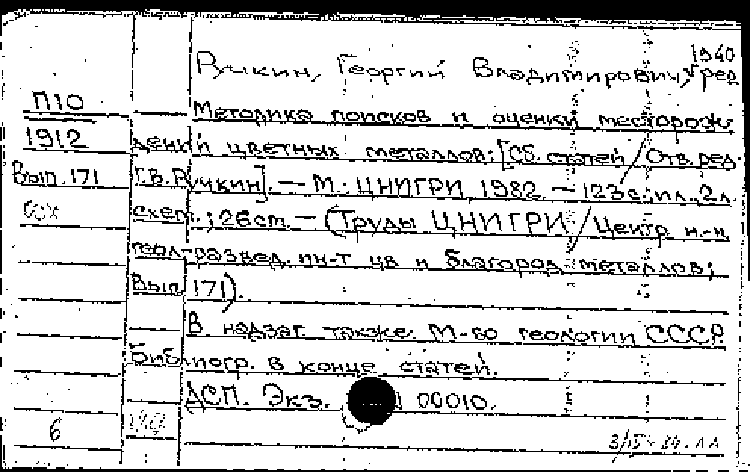 1940
Ручкин, Георгий Владимирович, ред
П10
Методика поисков и оценки месторож-
1912
дений цветных металлов: [Сб. статей / Отв. ред.
Вып. 171
Г.В. Ручкин]. — М.: ЦНИГРИ, 1982 — 123 с.; ил., 2 л.
схем.; 26 см. — (Труды ЦНИГРИ / Центр. н.-и.
геол.-развед. ин-т цв. и благород. металлов;
Вып. 171).
В надзаг. также: М-во геологии СССР.
Библиогр. в конце статей.
ДСП. Экз. 00010.
6